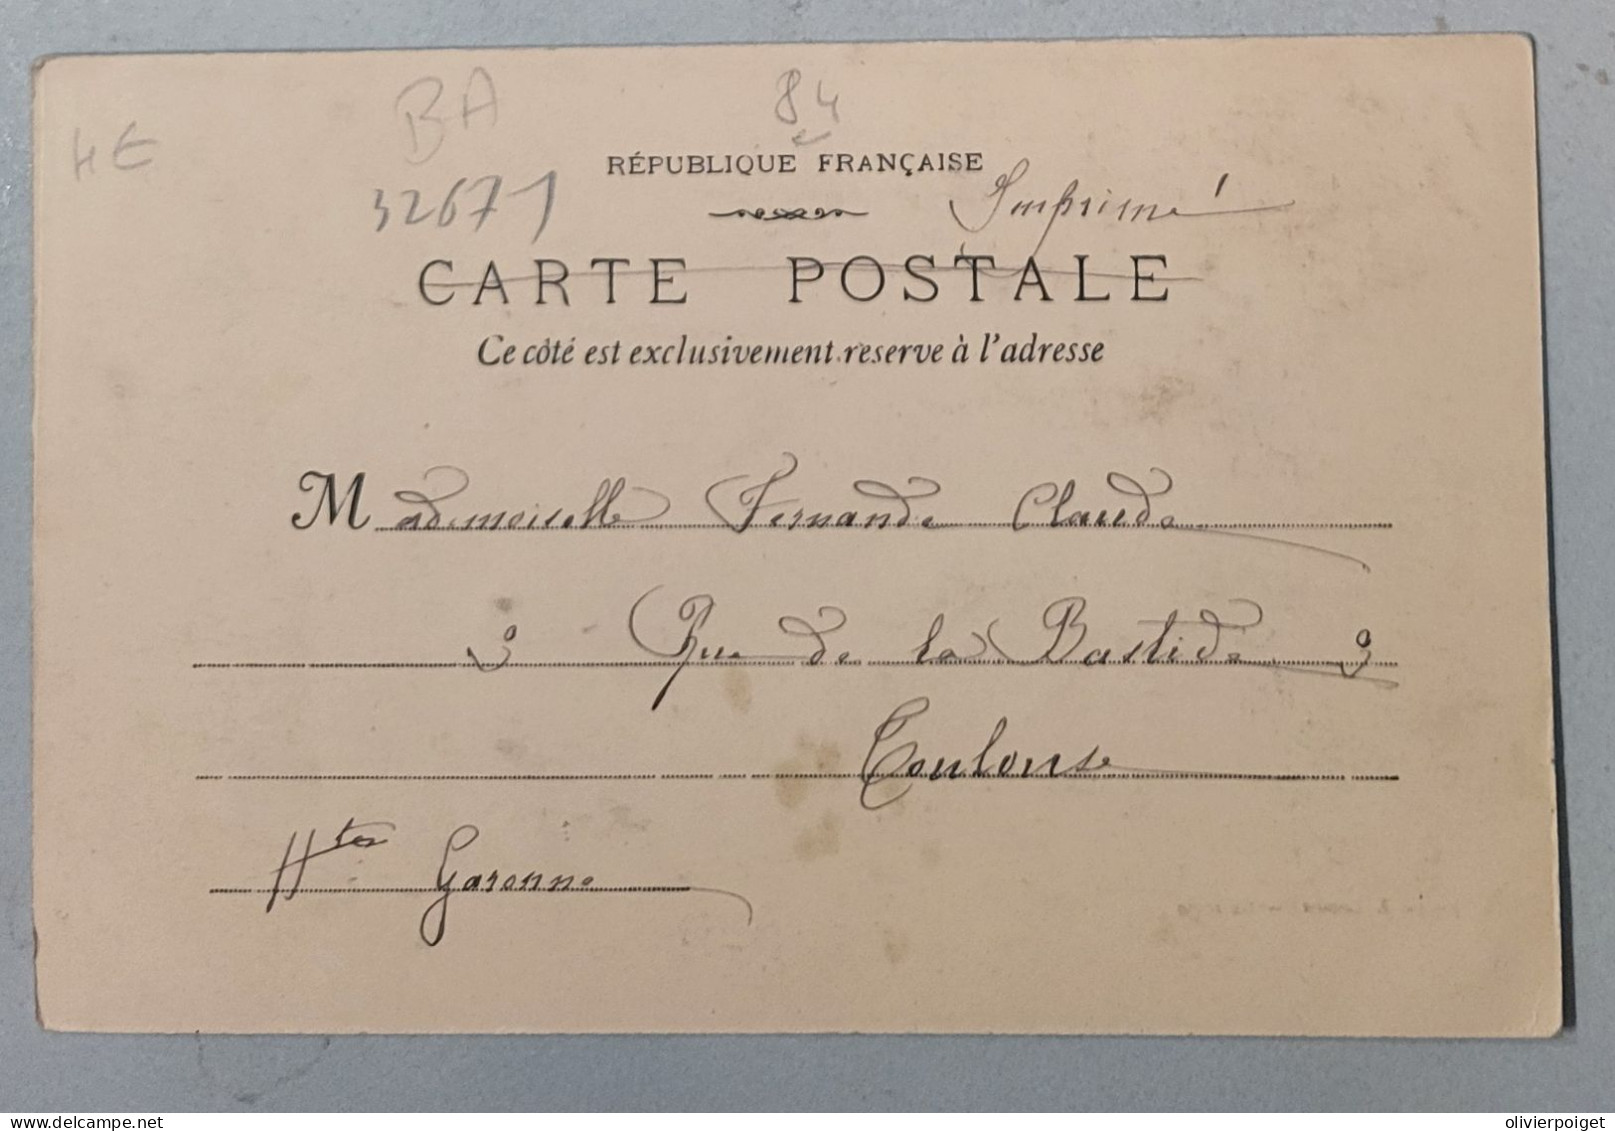 4€
BA
84
32671
RÉPUBLIQUE FRANÇAISE
Imprimé
CARTE POSTALE
Ce côté est exclusivement reserve à l'adresse
Mademoiselle Fernande Claude
3 Rue de la Bastide 3
Toulouse
Hte Garonne
olivierpoiget